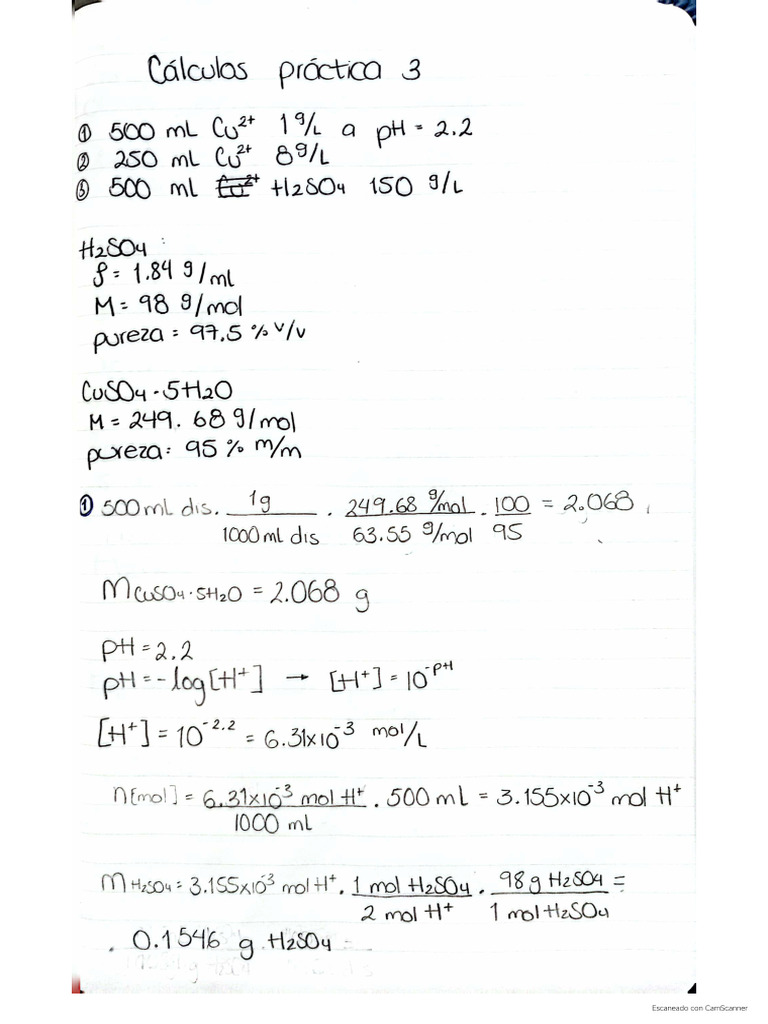 Cálculos práctica 3
① 500 mL Cu²⁺ 1 g/L a pH = 2.2
② 250 mL Cu²⁺ 8 g/L
③ 500 mL ~~Cu²⁺~~ H2SO4 150 g/L
H2SO4 :
ρ = 1.84 g/ml
M = 98 g/mol
pureza = 97.5 % v/v
CuSO4 · 5H2O
M = 249.68 g/mol
pureza: 95 % m/m
① 500 ml dis. · 1g / 1000 ml dis · 249.68 g/mol / 63.55 g/mol · 100 / 95 = 2.068
m CuSO4·5H2O = 2.068 g
pH = 2.2
pH = -log [H⁺] → [H⁺] = 10^-pH
[H⁺] = 10^-2.2 = 6.31x10^-3 mol/L
n[mol] = 6.31x10^-3 mol H⁺ / 1000 ml · 500 mL = 3.155x10^-3 mol H⁺
m H2SO4 = 3.155x10^-3 mol H⁺ · 1 mol H2SO4 / 2 mol H⁺ · 98 g H2SO4 / 1 mol H2SO4 =
0.1546 g H2SO4
Escaneado con CamScanner